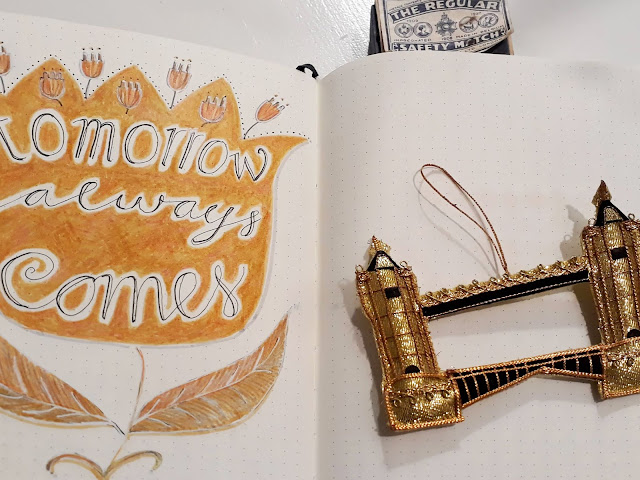 THE REGULAR
SAFETY MATCH
tomorrow
always
Comes